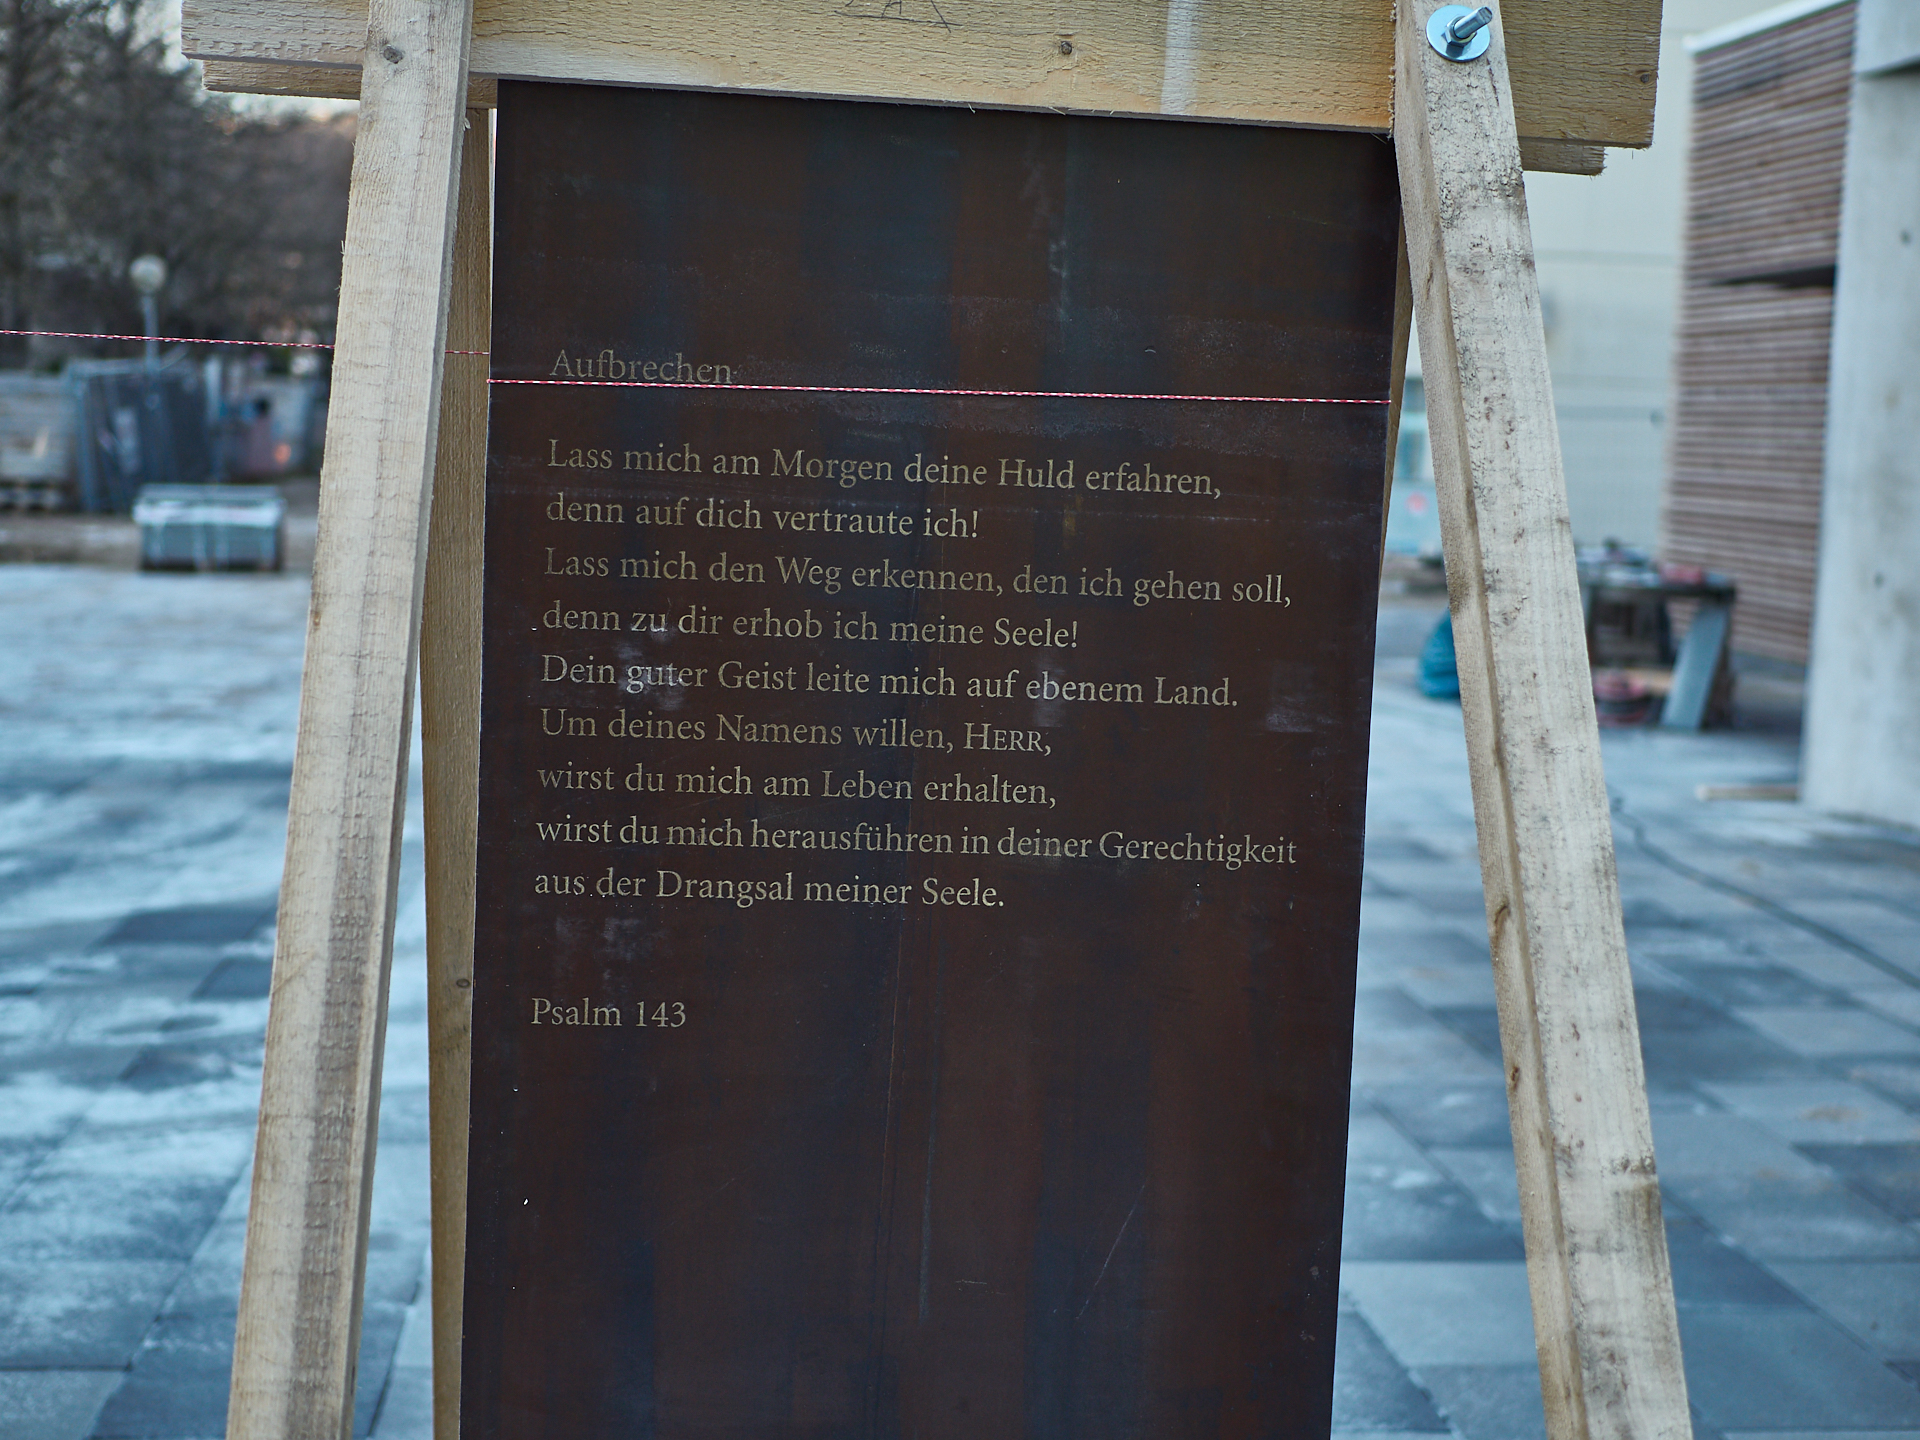 Aufbrechen
Lass mich am Morgen deine Huld erfahren,
denn auf dich vertraute ich!
Lass mich den Weg erkennen, den ich gehen soll,
denn zu dir erhob ich meine Seele!
Dein guter Geist leite mich auf ebenem Land.
Um deines Namens willen, HERR,
wirst du mich am Leben erhalten,
wirst du mich herausführen in deiner Gerechtigkeit
aus der Drangsal meiner Seele.
Psalm 143